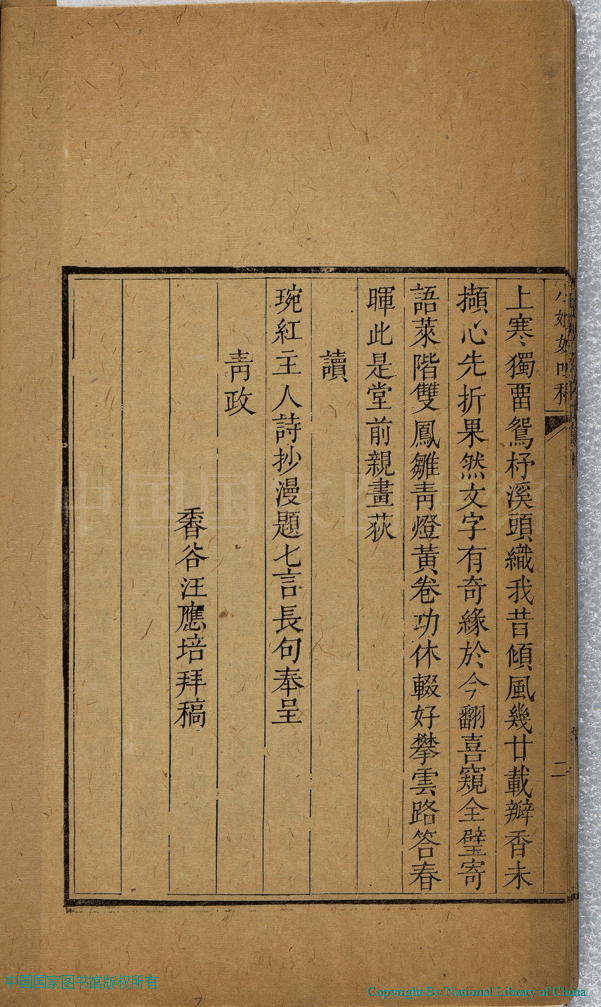 如如吟稿
二
上寒獨畱鴛杼溪頭織我昔傾風幾廿載瓣香未
擷心先折果然文字有奇緣於今翻喜窺全璧寄
語萊階雙鳳雛靑燈黃卷功休輟好攀雲路答春
暉此是堂前親畫荻
讀
琬紅主人詩抄漫題七言長句奉呈
靑政
香谷汪應培拜稿
中国国家图书馆
中国国家图书馆版权所有
Copyright By National Library of China